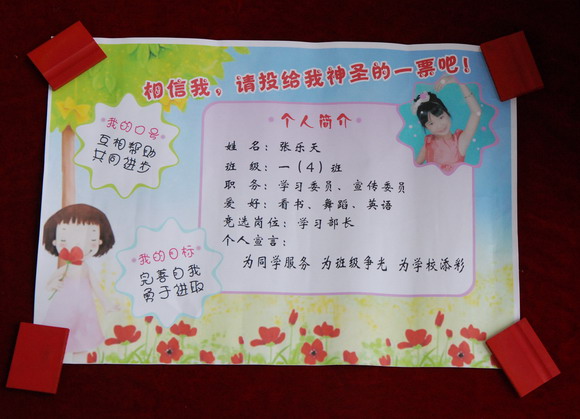 相信我，请投给我神圣的一票吧！
我的口号
互相帮助
共同进步
个人简介
姓 名：张乐天
班 级：一（4）班
职 务：学习委员、宣传委员
爱 好：看书、舞蹈、英语
竞选岗位：学习部长
个人宣言：
为同学服务 为班级争光 为学校添彩
我的目标
完善自我
勇于进取